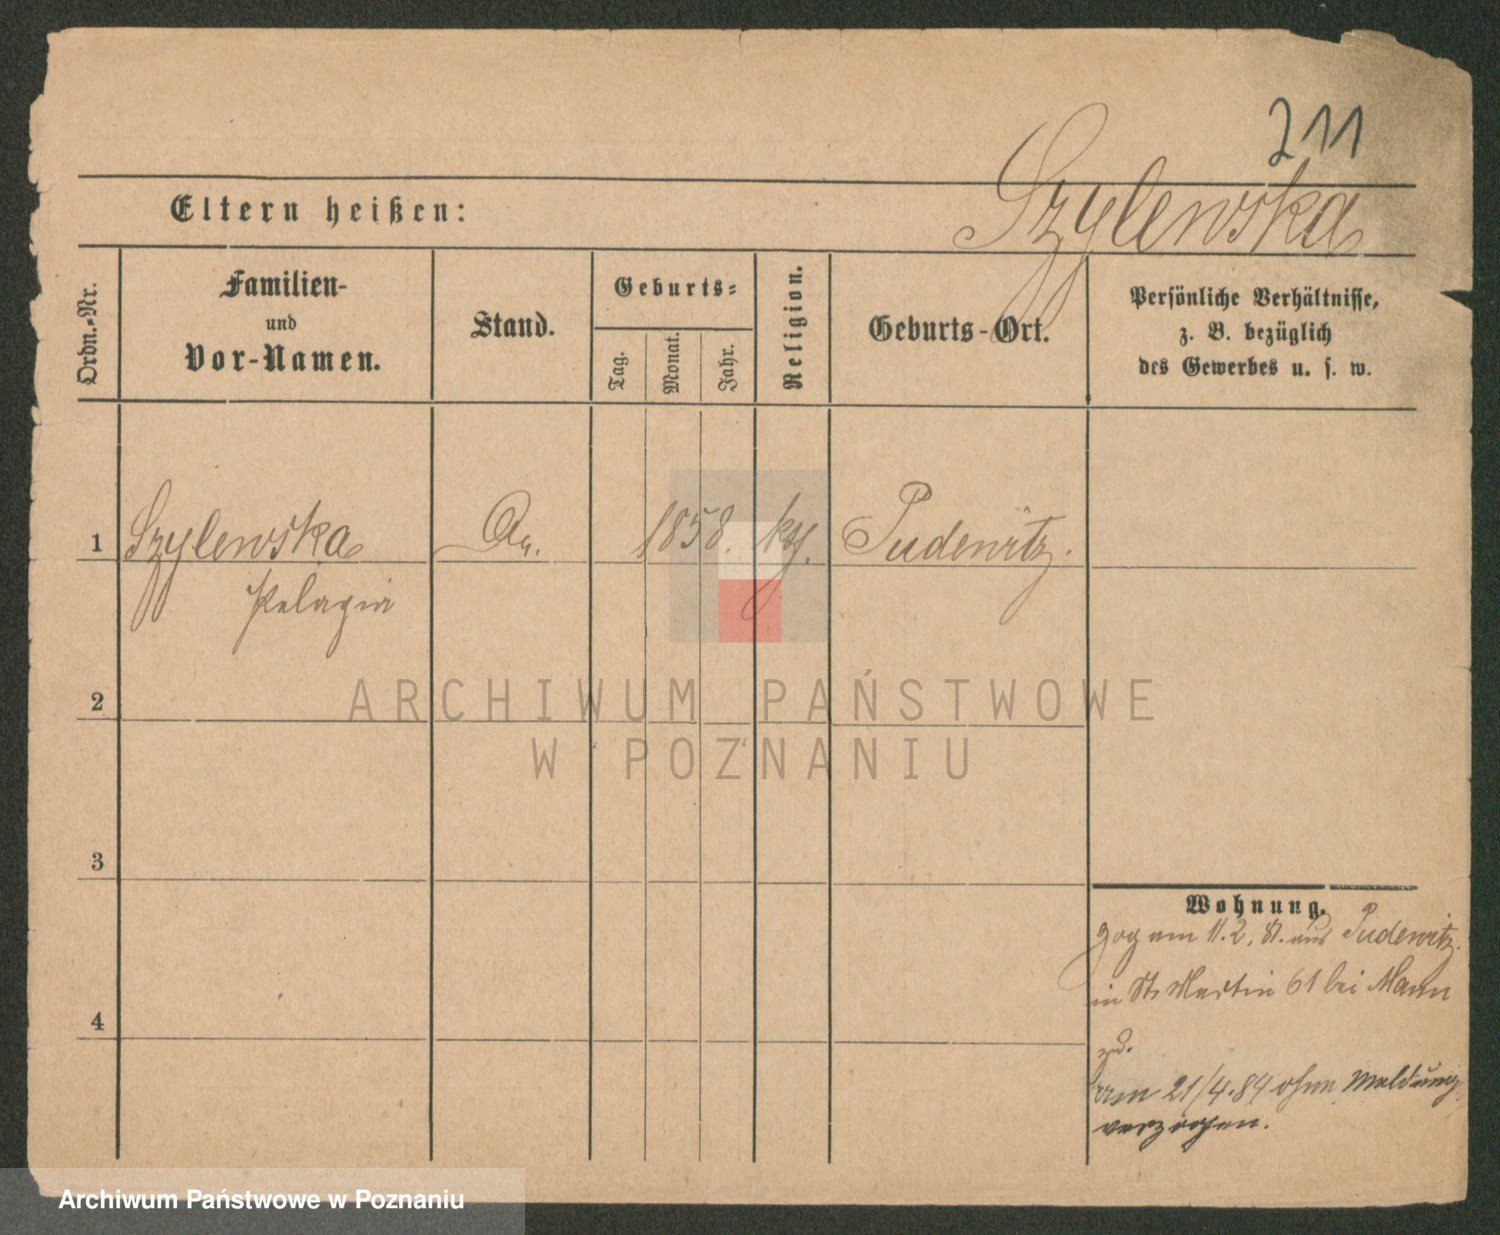 211
Szylewska
Eltern heißen:
Ordn.-Nr.
Familien-
und
Vor-Namen.
Stand.
Geburts-
Tag.
Monat.
Jahr.
Religion.
Geburts-Ort.
Persönliche Verhältnisse,
z. B. bezüglich
des Gewerbes u. s. w.
1 Szylewska 1858. Pudewitz.
Pelagia
2
3
4
Wohnung.
zog am 11.2. 81. aus Pudewitz.
in St. Martin 61 bei Mann
zu.
am 21/4.84 ohne Meldung
verzogen.
ARCHIWUM PAŃSTWOWE
W POZNANIU
Archiwum Państwowe w Poznaniu